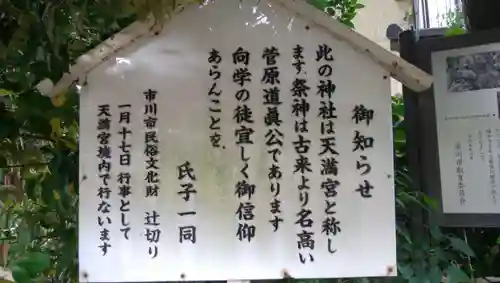 御知らせ
此の神社は天満宮と称し
ます。祭神は古来より名高い
菅原道眞公であります
向学の徒宜しく御信仰
あらんことを。
氏子一同
市川市民俗文化財 辻切り
一月十七日 行事として
天満宮境内で行ないます